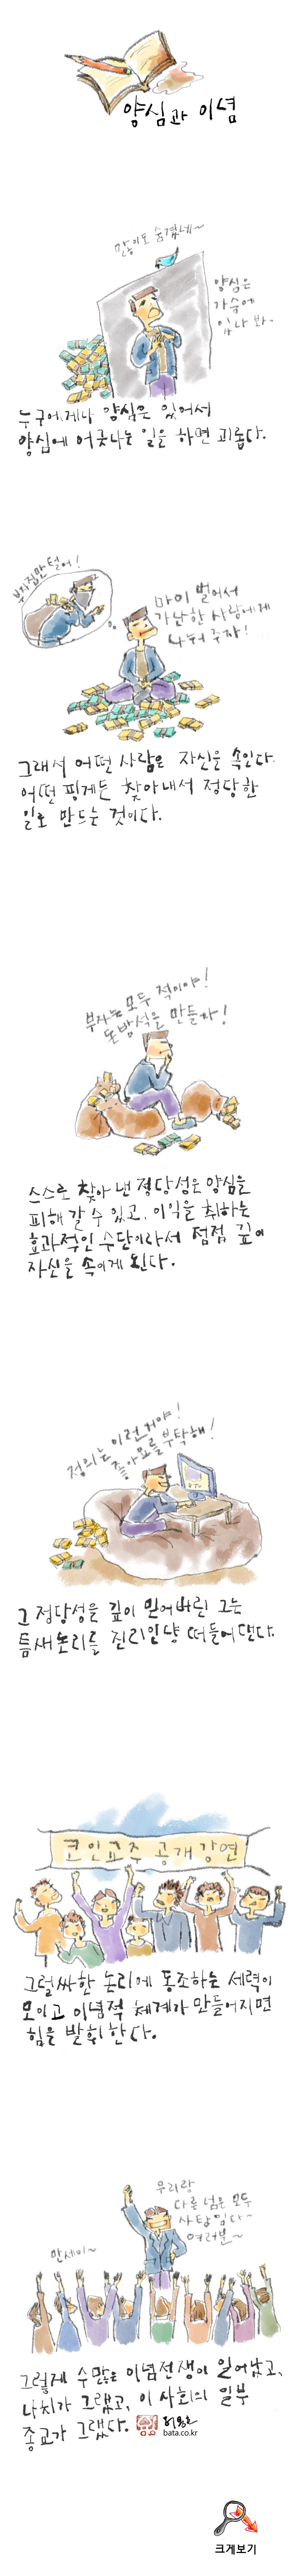 양심과 이념
많이도 숨겼네~
양심은
가슴에
있나 봐~
누구에게나 양심은 있어서
양심에 어긋나는 일을 하면 괴롭다.
부잣집만 털어!
마이 벌어서
가난한 사람에게
나눠 주자!
그래서 어떤 사람은 자신을 속인다.
어떤 핑게든 찾아내서 정당한
일로 만드는 것이다.
부자는 모두 적이야!
돈방석을 만들자!
스스로 찾아 낸 정당성은 양심을
피해 갈 수 있고, 이익을 취하는
효과적인 수단이라서 점점 깊이
자신을 속이게 된다.
정의는 이런거야!
좋아요를 부탁해!
그 정당성을 깊이 믿어버린 그는
틈새논리를 진리인냥 떠들어댄다.
코인교주 공개강연
그럴싸한 논리에 동조하는 세력이
모이고 이념적 체계가 만들어지면
힘을 발휘한다.
우리랑
다른 넘은 모두
사탄임다~
여러분~
만세이~
그렇게 수많은 이념전쟁이 일어났고,
나치가 그랬고, 이 사회의 일부
종교가 그랬다.
bata.co.kr
크게보기